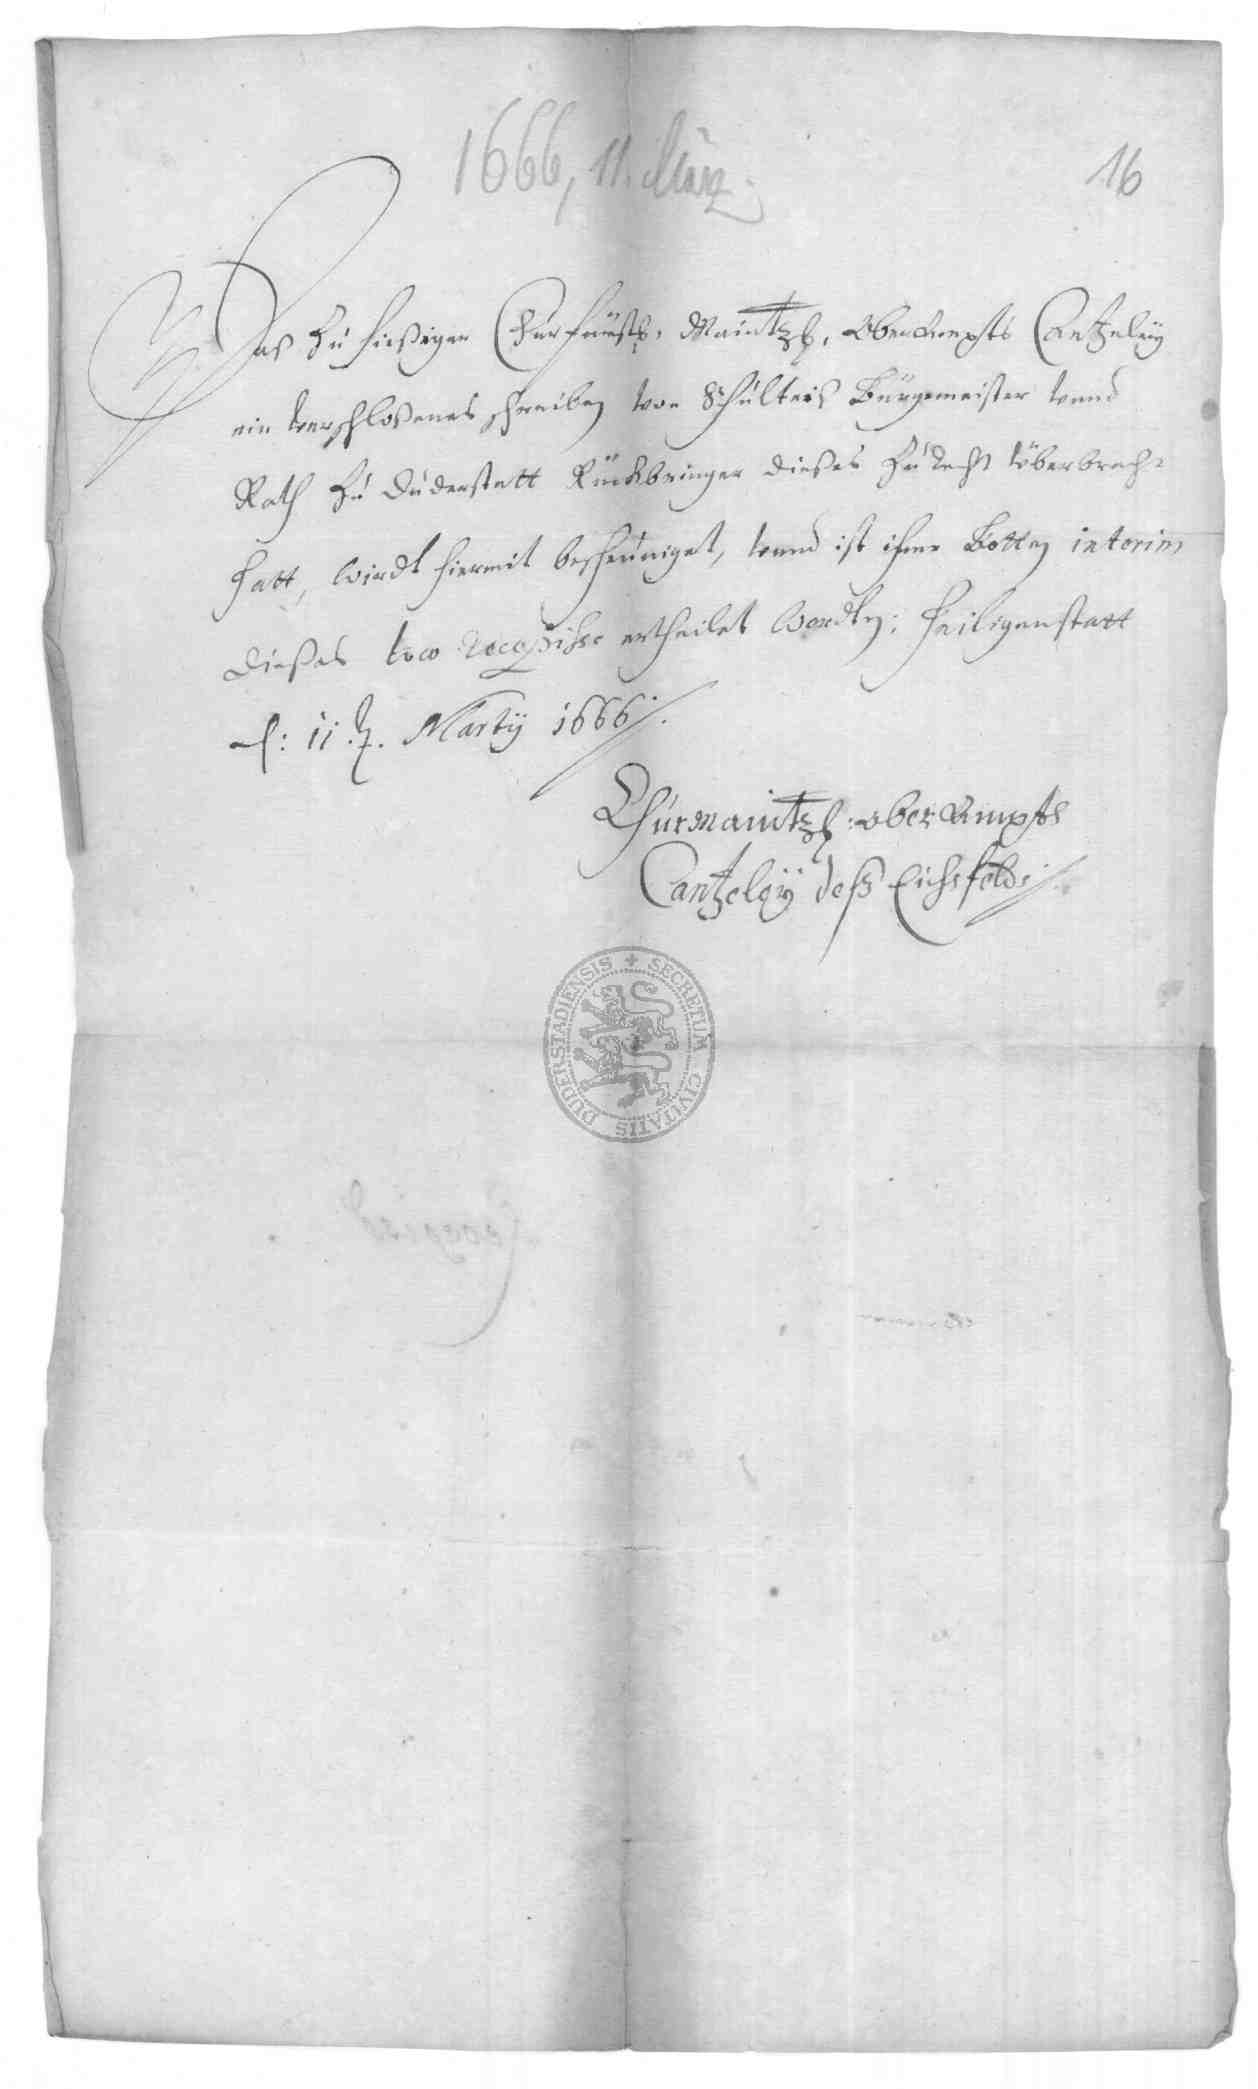 1666, 11. März.
16
Das zu hießiger Churfürstl. Maintzl. OberAmpts Cantzeley
ein verschloßenes schreiben von Schulteis Bürgemeister vnnd
Rath zu Duderstatt Rückbringer dießes zu recht überbracht
hatt, wirdt hiermit bescheiniget, vnnd ist ihme Botten interim
dießes loco recepisse ertheilet worden; Heiligenstatt
d: 11. t. Martij 1666 ./.
Churmaintzl: ober Ampts
Cantzeley deß Eichsfelds ./.
SECRETUM CIVITATIS DUDERSTADIENSIS